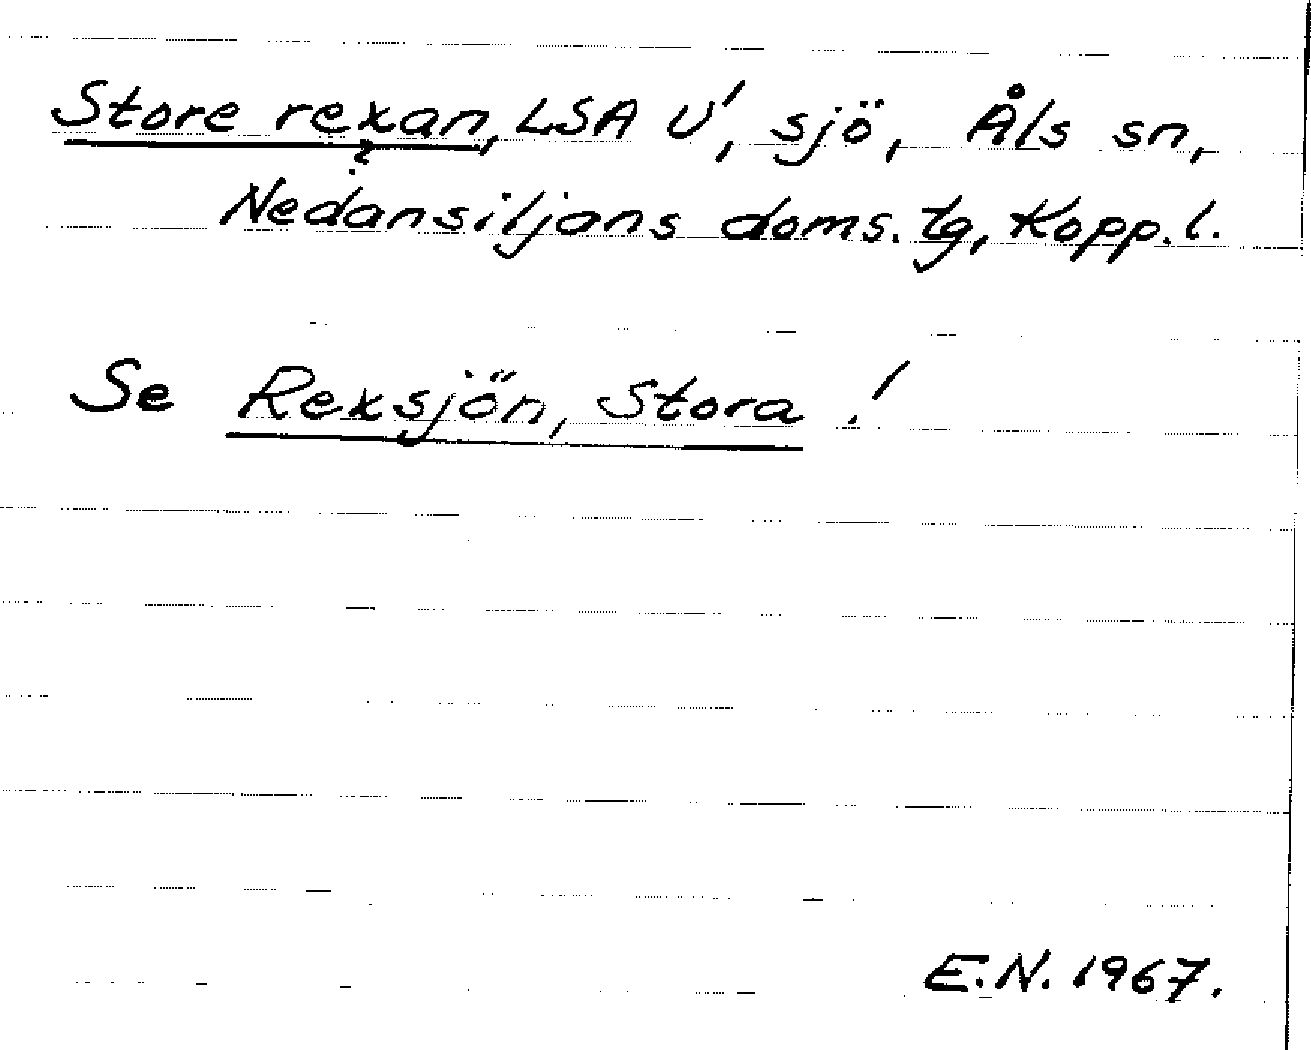 Store rexan, LSA U', sjö, Åls sn,
?
Nedansiljans doms. tg, Kopp. l.
Se Rexsjön, Stora !
E.N. 1967.